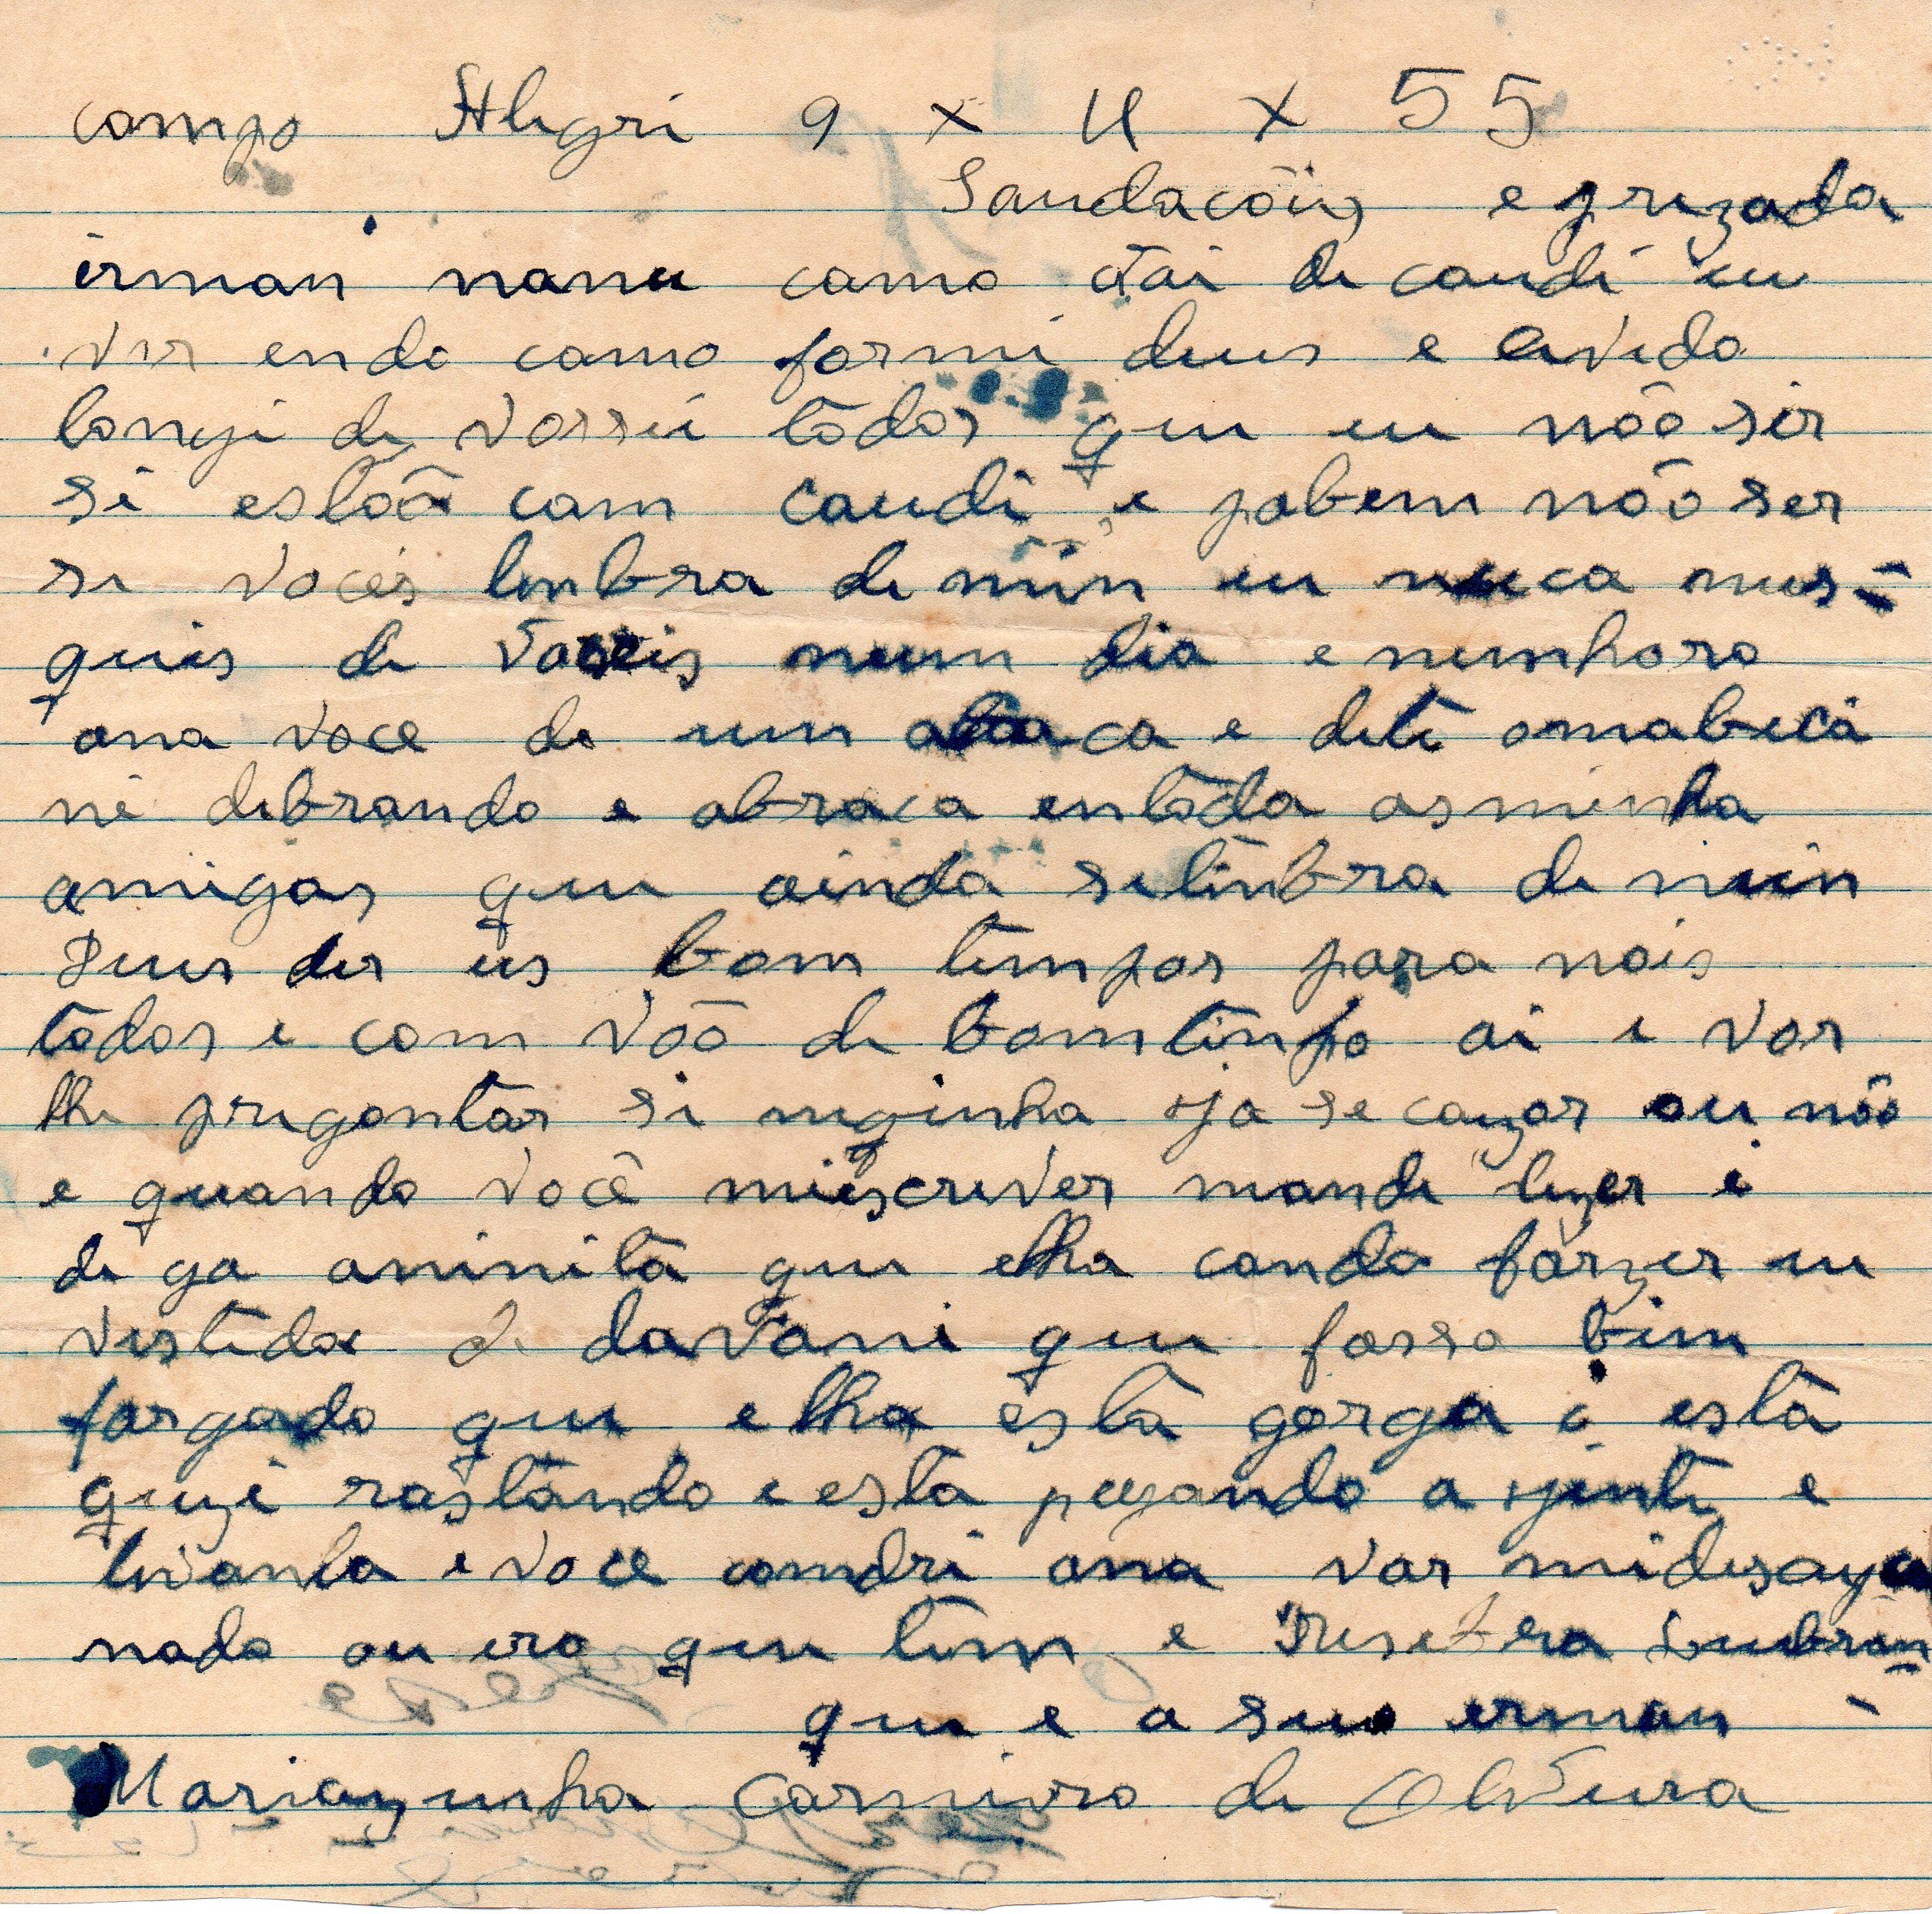 campo Alegri 9 x 11 x 55
Saudacõis e prezada
irman nanu como vai di caudi eu
vor endo como formi deus e avida
longi di vossei todos que eu nõo sir
si estõo com caudi e pobem nõo ser
si voces lembra di min eu nuca mus-
quis di voceis num dia e nunhora
ana voce do um abraca e diti omabecá
ni dibrando e abraca entoda asminha
amigas que ainda silinbra di min
Deus der us bom tempos para nois
todos e com võo di bomtinpo ai e vor
lhi prigontar si niginha ja se cazor ou nõo
e quando você miescriver mandi lizer i
di ga aninita que elha condo forzer eu
vistido di davani que fossa bim
forgado que elha está gorga i está
quizi rastando e esta pezando a jinti e
livanta e voce comdri ana vor midesaya
nado ou ero que tim e
que e a sua erman -
Mariazinha Carneiro di Oliveira